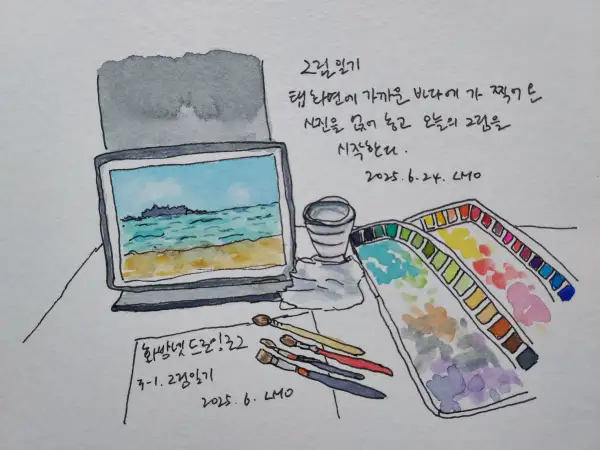 그림일기
탭 화면에 가까운 바다에 가 찍어 온
사진을 띄어 놓고 오늘의 그림을
시작한다.
2025.6.24. LMO
드로잉노트
3-1. 그림일기
2025.6. LMO